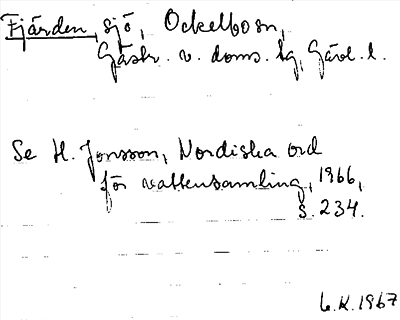 Fjärden, sjö, Ockelbo sn,
Gästr. v. doms. hg, Gävl. l.
Se H. Jonsson, Nordiska ord
för vattensamling, 1966,
s. 234.
L.K. 1967